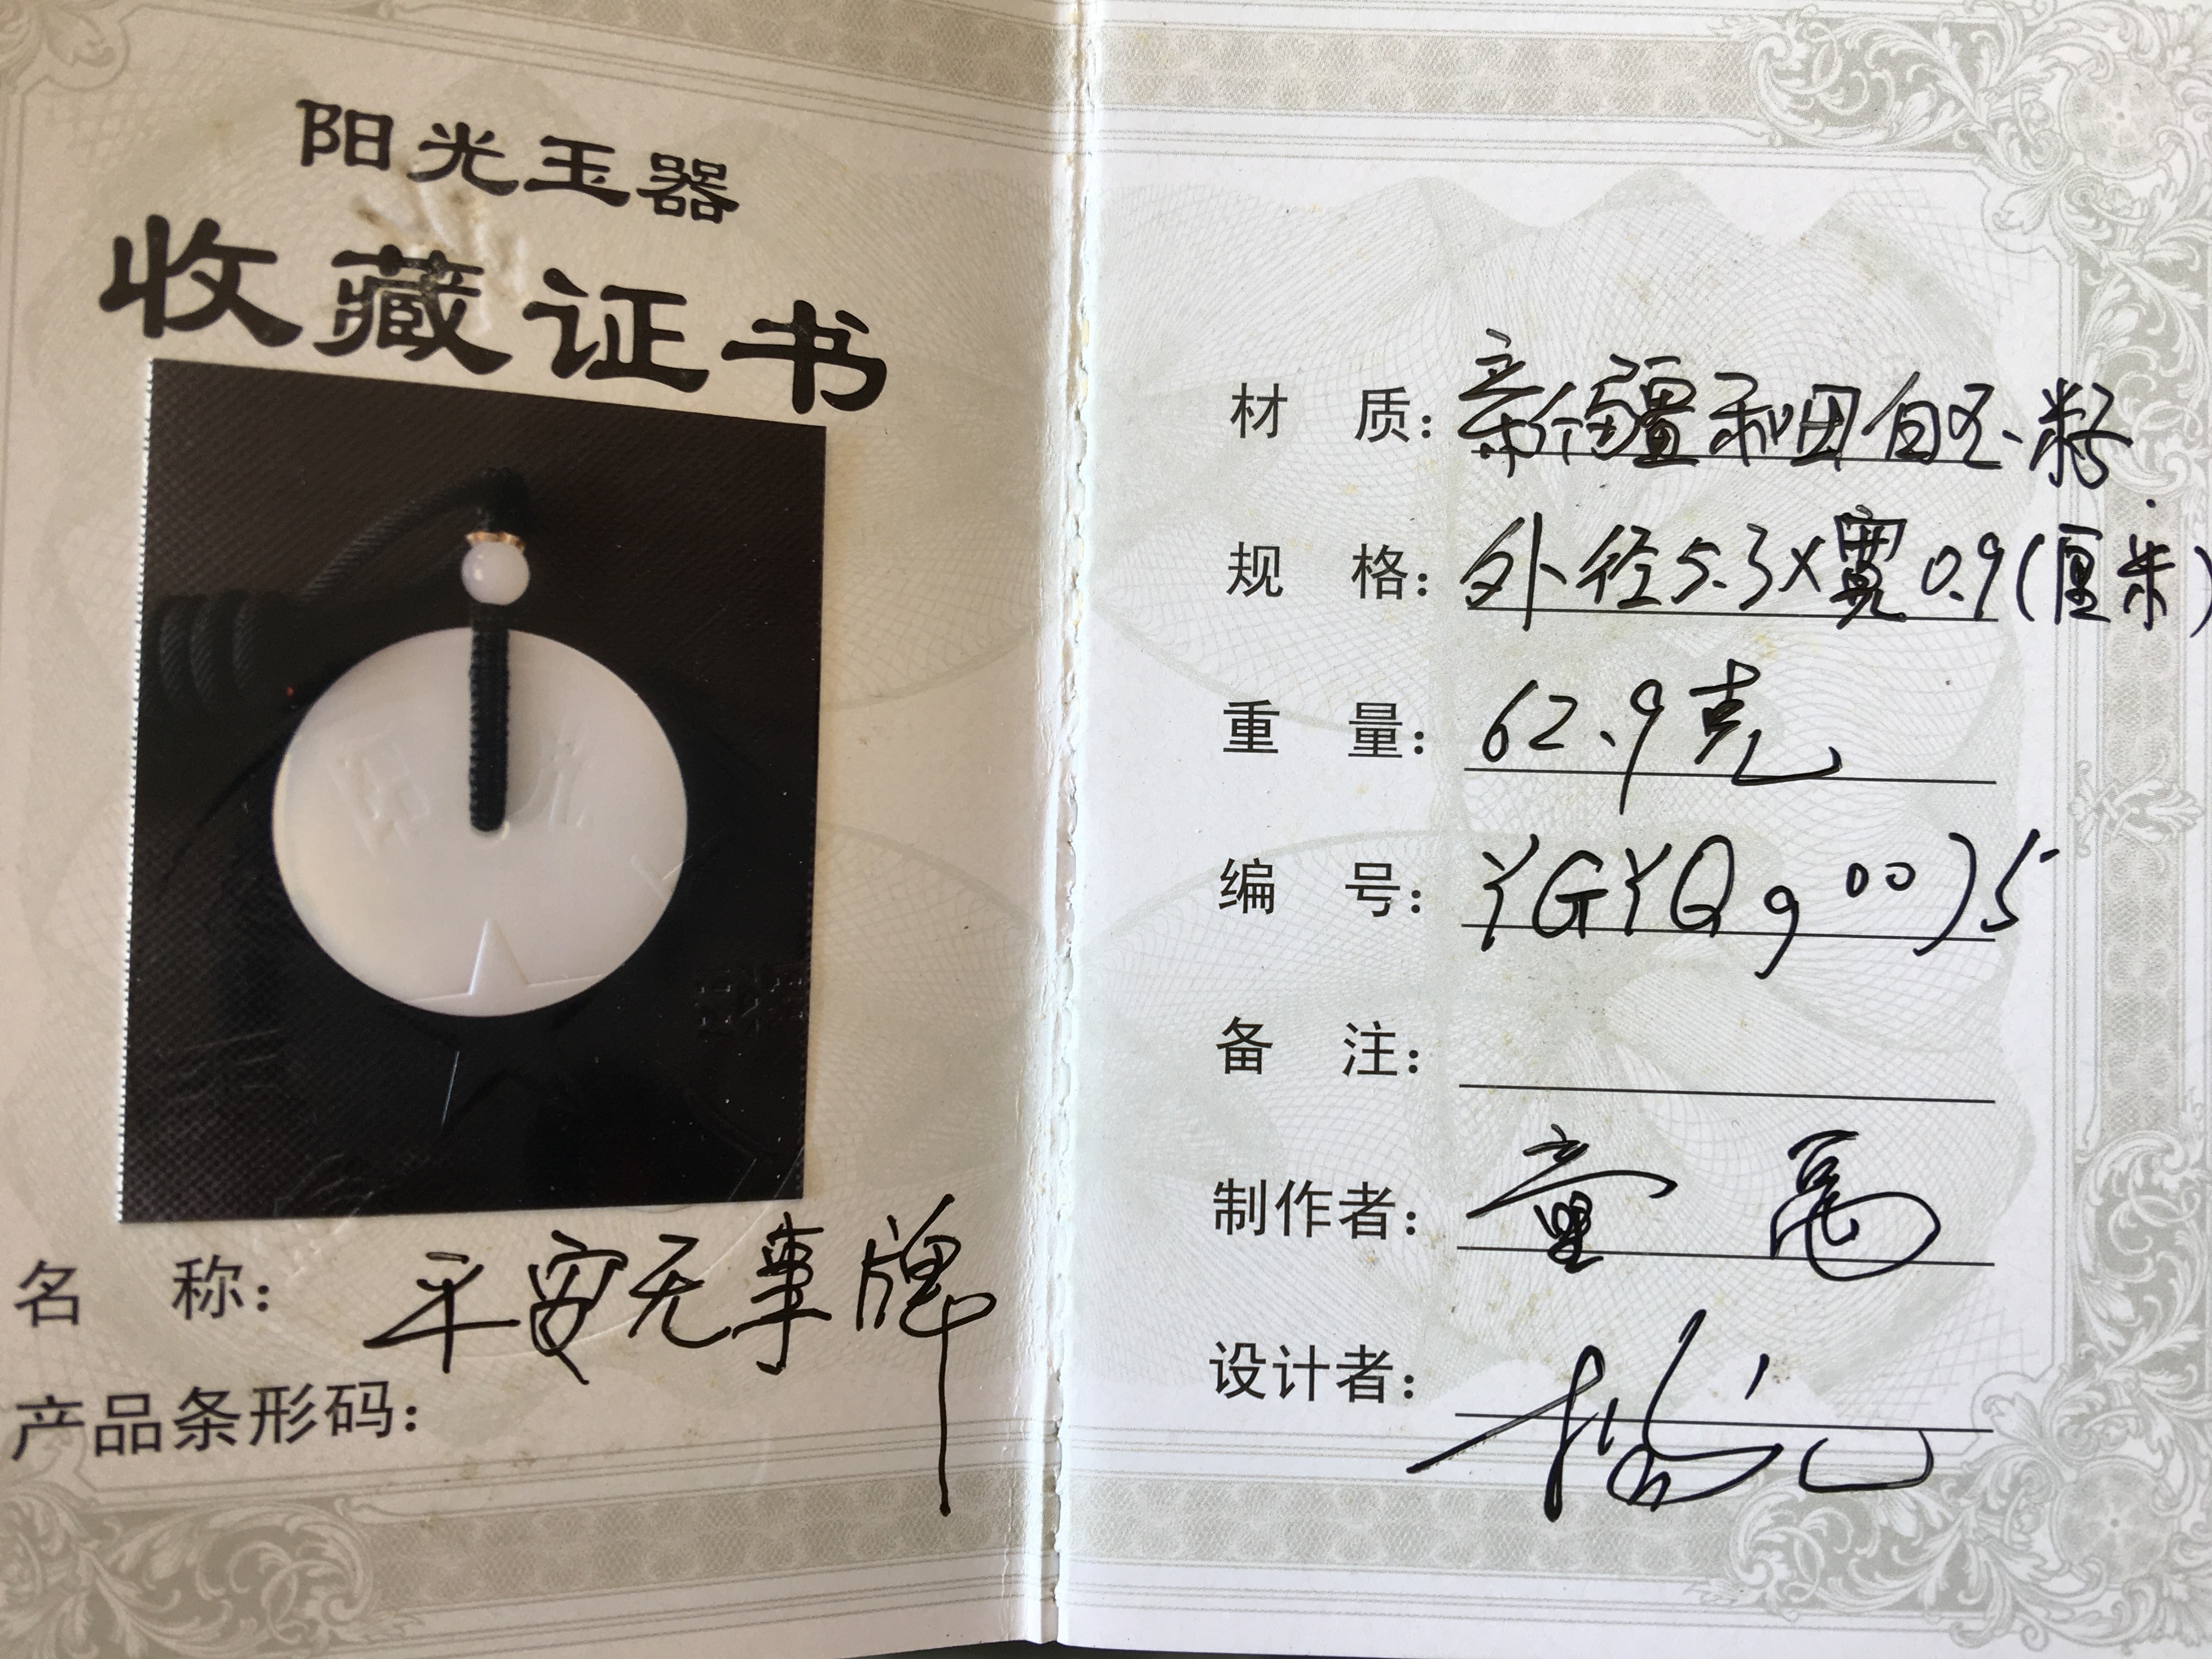 阳光玉器
收藏证书
名 称：平安无事牌
产品条形码：
材 质：新疆和田白玉籽
规 格：外径5.3×宽0.9(厘米)
重 量：62.9克
编 号：YGYQg0035
备 注：
制作者：童亮
设计者：